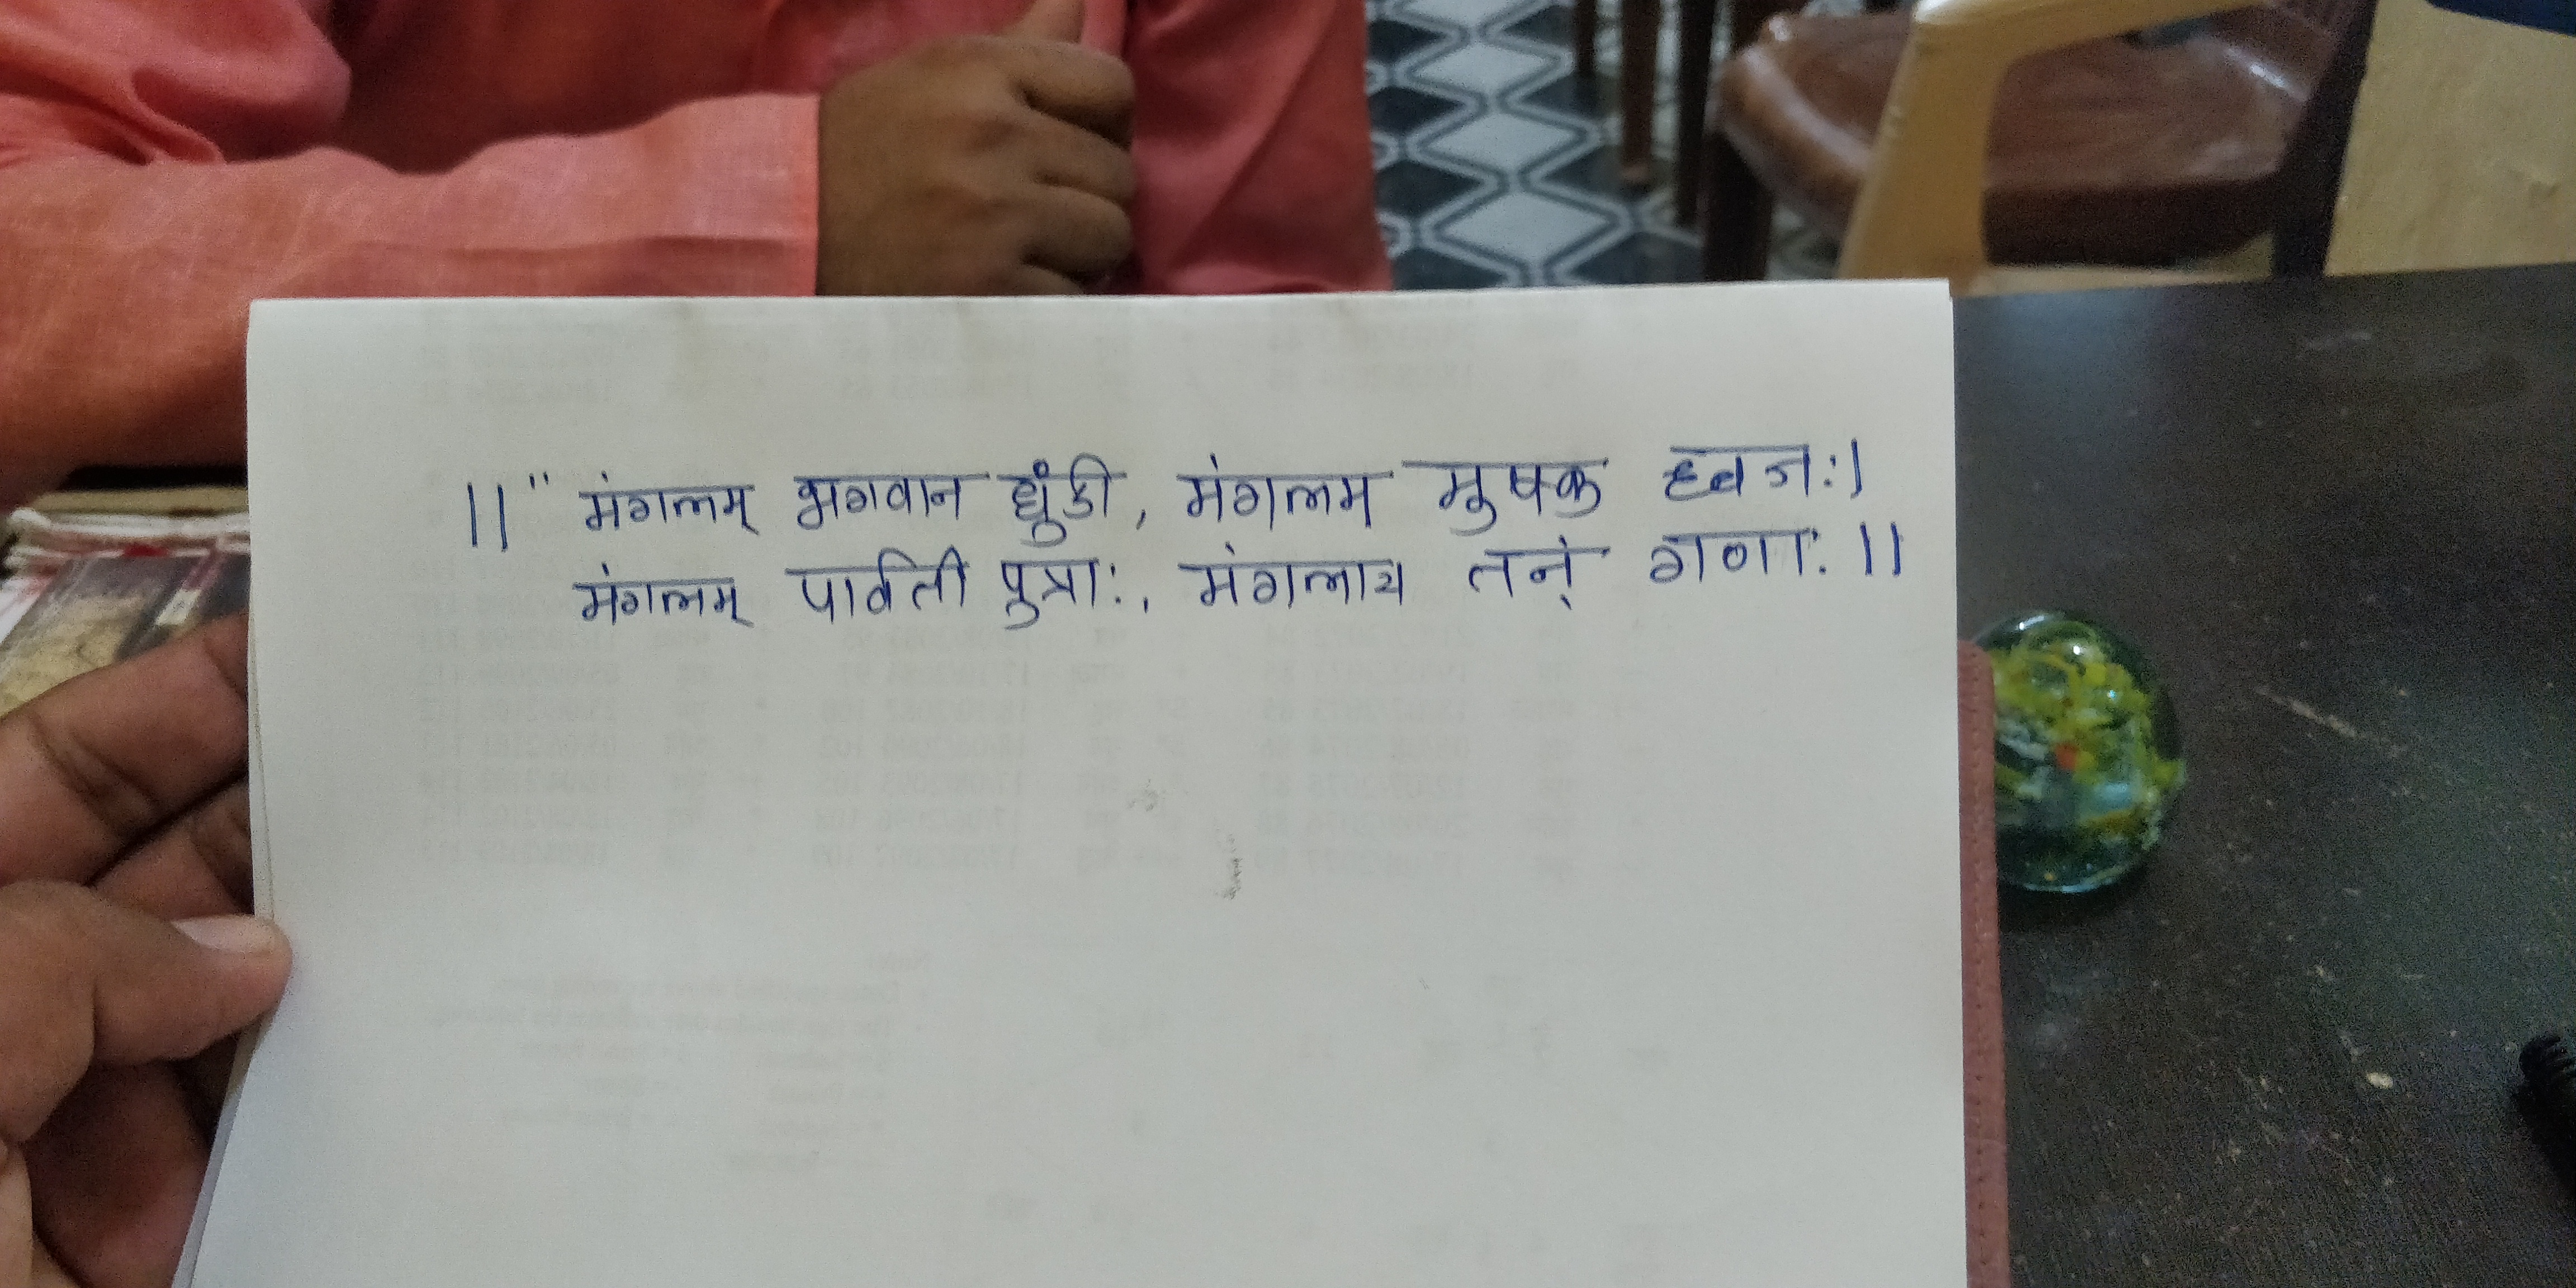 ।। " मंगलम् भगवान धुंडी, मंगलम मुषक ध्वजः।
मंगलम् पार्वती पुत्राः, मंगलाय तनं गणाः ।।